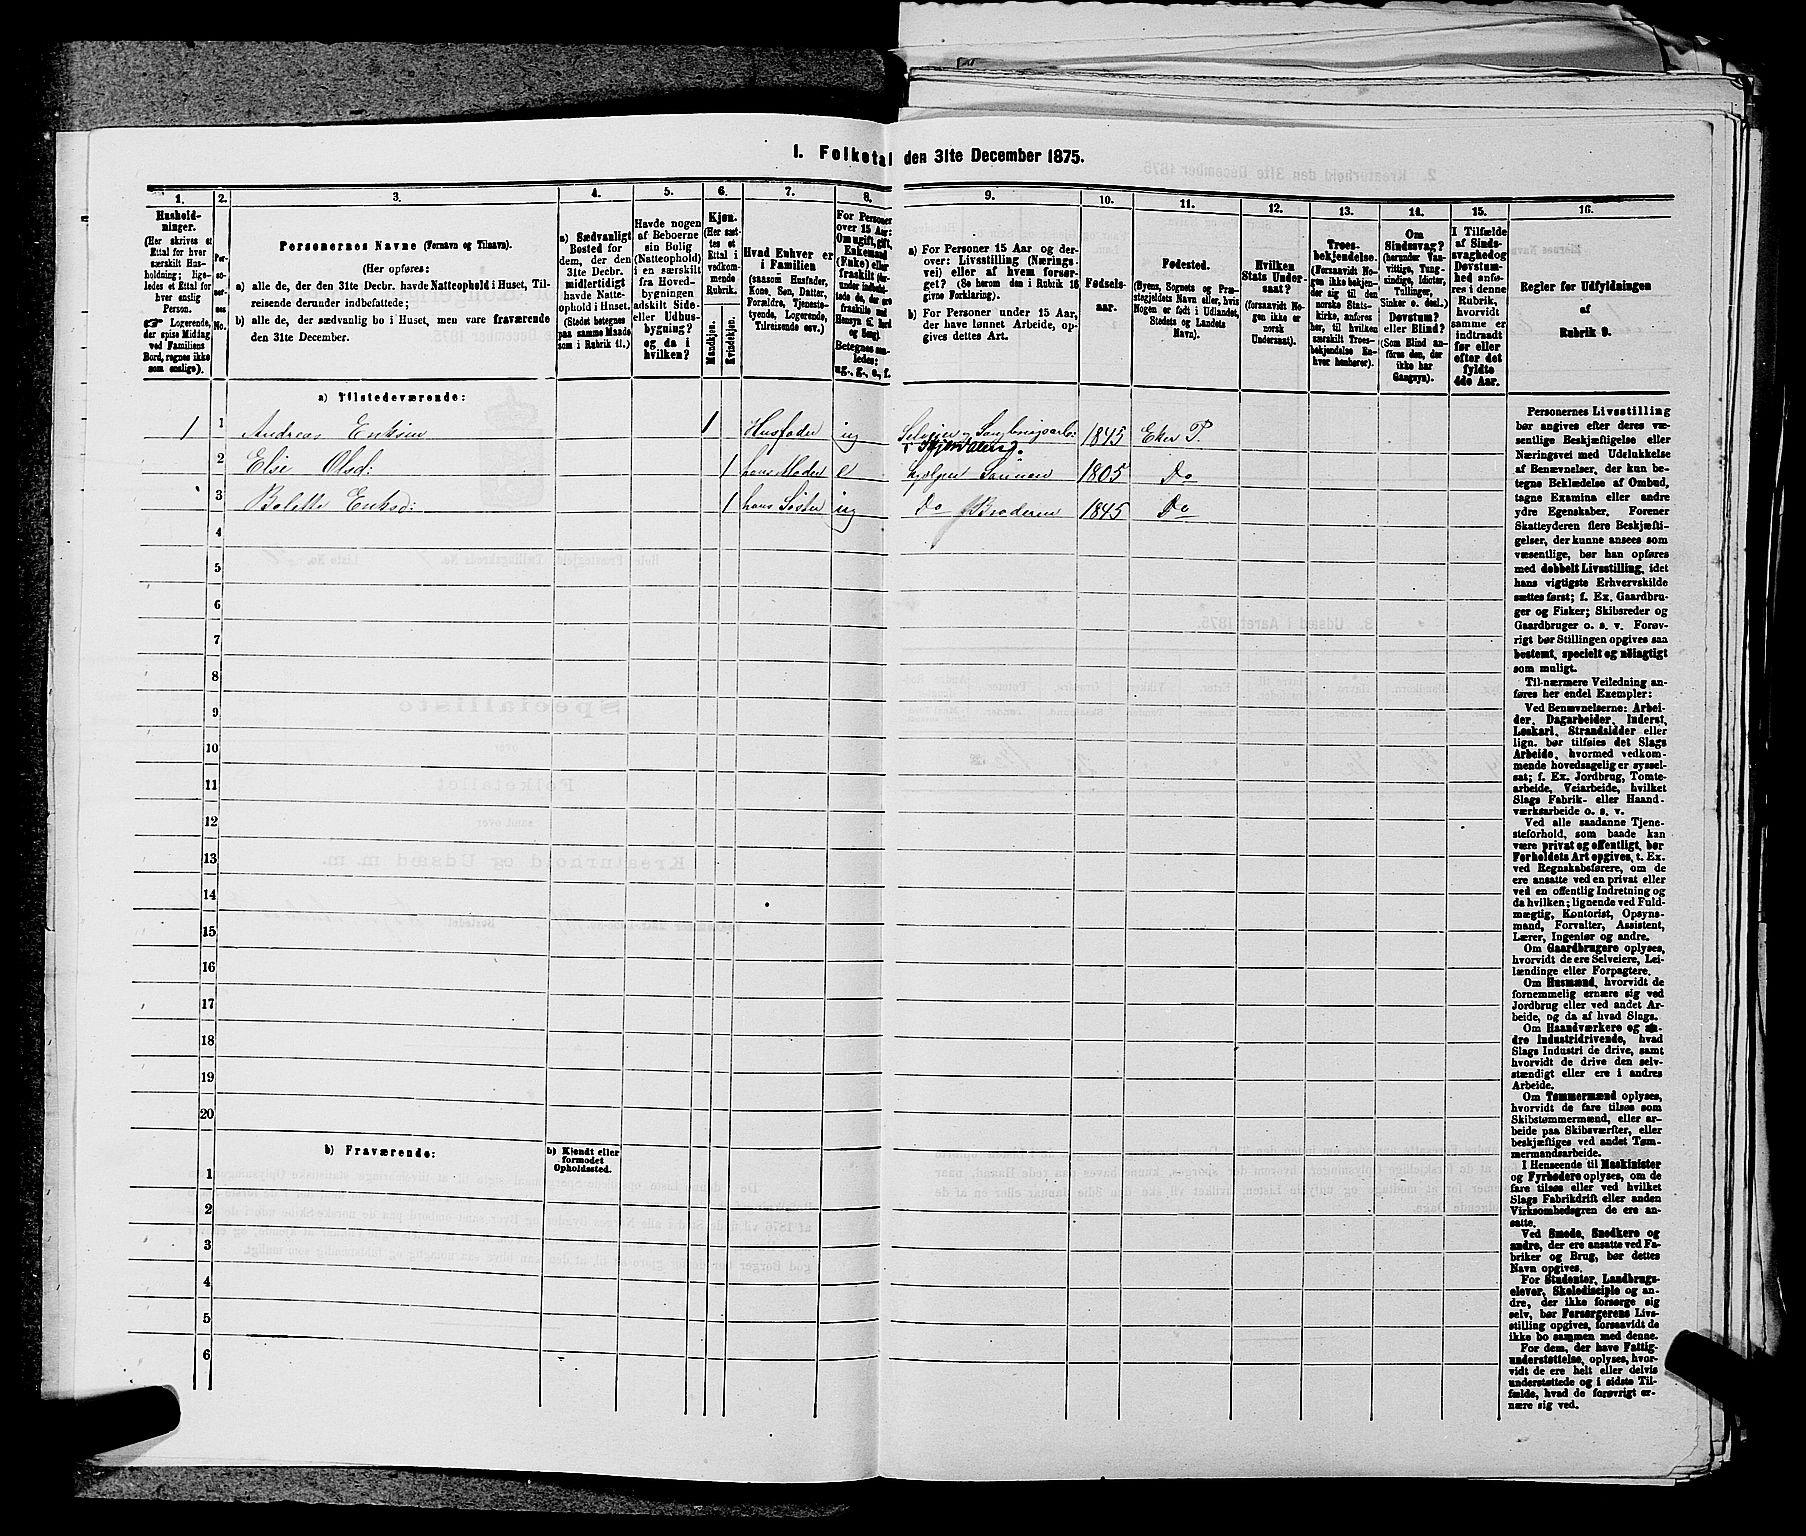 1. Folketal den 31te December 1875.
1.
Hushold-
ninger.
(Her skrives et
Ettal for hver
særskilt Hus-
holdning; lige-
ledes et Ettal for
hver enslig
Person.
☞ Logerende,
der spise Middag
ved Familiens
Bord, regnes ikke
som enslige).
2.
Per-
so-
ner-
nes
No.
3.
Personernes Navne (Fornavn og Tilnavn).
(Her opføres:
a) alle de, der den 31te Decbr. havde Natteophold i Huset, Til-
reisende derunder indbefattede;
b) alle de, der sædvanlig bo i Huset, men vare fraværende
den 31te December.
4.
a) Sædvanligt
Bosted for
dem, der den
31te Decbr.
midlertidigt
havde Natte-
ophold i Huset.
(Stedet betegnes
paa samme Maade
som i Rubrik 11.)
5.
Havde nogen
af Beboerne
sin Bolig
(Natteophold)
i en særskilt
fra Hoved-
bygningen
adskilt Side-
eller Udhus-
bygning?
og da i
hvilken?
6.
Kjøn.
(Her sæt-
tes et
Ettal i
vedkom-
mende
Rubrik.
Mandkjøn.
Kvindekjøn.
7.
Hvad Enhver er
i Familien
(saasom Husfader,
Kone, Søn, Datter,
Forældre, Tjeneste-
tyende, Logerende,
Tilreisende osv.)
8.
For Personer
over 15 Aar:
Om ugift, gift,
Enkemand
(Enke) eller
fraskilt
Betegnes saa-
ledes:
ug., g., e., f.
9.
a) For Personer 15 Aar og der-
over: Livsstilling (Nærings-
vei) eller af hvem forsør-
get? (Se herom den i Rubrik 16
givne Forklaring).
b) For Personer under 15 Aar,
der have lønnet Arbeide, op-
gives dettes Art.
10.
Fødsels-
aar.
11.
Fødested.
(Byens, Sognets og Præ-
stegjeldets Navn eller, hvis
Nogen er født i Udlandet,
Stedets og Landets
Navn).
12.
Hvilken
Stats Under-
saat?
(forsaavidt No-
gen ikke er
norsk
Undersaat).
13.
Troes-
bekjendelse.
(Forsaavidt No-
gen ikke bekjen-
der sig til den
norske Stats-
kirke, anføres
her, til hvilken
særskilt Troes-
bekjendelse En-
hver henhører).
14.
Om
Sindssvag?
(herunder Van-
vittige, Tung-
sindige, Idioter,
Tullinger,
Sinker o. desl.)
Døvstum?
eller Blind?
(Som Blind an-
føres den, der
ikke har
Gangsyn).
15.
I Tilfælde
af Sinds-
svaghed og
Døvstum-
hed anfø-
res i denne
Rubrik,
hvorvidt
samme er
indtraadt
før eller
efter det
fyldte
4de Aar.
16.
Regler for Udfyldningen
af
Rubrik 9.
a) Tilstedeværende:
1 1 Andreas Eriksen 1 Husfader ug Selveier 1845 Eker P.
2 Else Olsd: 1 hans Moder e hjelper Sønnen 1805 Do
3 Bolette Eriksd: 1 hans Søster ug Do Broderen 1845 Do
4
5
6
7
8
9
10
11
12
13
14
15
16
17
18
19
20
b) Fraværende:
b) Kjendt eller
formodet
Opholdssted.
1
2
3
4
5
6
Personernes Livsstilling
bør angives efter deres væ-
sentlige Beskjæftigelse eller
Næringsvei med Udelukkelse
af Benævnelser, der kun be-
tegne Beklædelse af Ombud,
tagne Examina eller andre
ydre Egenskaber. Forener
Skatteyderen flere Beskjæfti-
gelser, der kunne ansees som
væsentlige, bør han opføres
med dobbelt Livsstilling, idet
hans vigtigste Erhvervskilde
sættes først; f. Ex. Gaardbru-
ger og Fisker; Skibsreder og
Gaardbruger o. s. v. Forøv-
rigt bør Stillingen opgives saa
bestemt, specielt og nøiagtigt
som muligt.
Til nærmere Veiledning an-
føres her endel Exempler:
Ved Benævnelserne: Arbei-
der, Dagarbeider, Inderst,
Løskarl, Strandsidder eller
lign. bør tilføies det Slags
Arbeide, hvormed vedkom-
mende hovedsagelig er syssel-
sat; f. Ex. Jordbrug, Tomte-
arbeide, Veiarbeide, hvilket
Slags Fabrik- eller Haand-
værksarbeide o. s. v.
Ved alle saadanne Tjene-
steforhold, som baade kan
være privat og offentligt, bør
Forholdets Art opgives, t. Ex.
ved Regnskabsførere, om de
ere ansatte ved en privat eller
ved en offentlig Indretning og
da hvilken; lignende ved Fuld-
mægtig, Kontorist, Opsyns-
mand, Forvalter, Assistent,
Lærer, Ingeniør og andre.
Om Gaardbrugere oplyses,
hvorvidt de ere Selveiere, Lei-
lændinge eller Forpagtere.
Om Husmænd, hvorvidt de
fornemmelig ernære sig ved
Jordbrug eller ved andet Ar-
beide, og da af hvad Slags.
Om Haandværkere og an-
dre Industridrivende, hvad
Slags Industri de drive, samt
hvorvidt de drive den selv-
stændigt eller ere i andres
Arbeide.
Om Tømmermænd oplyses,
hvorvidt de fare tilsøs som
Skibstømmermænd, eller ar-
beide paa Skibsværfter, eller
beskjæftiges ved andet Tøm-
mermandsarbeide.
I Henseende til Maskinister
og Fyrbødere oplyses, om de
fare tilsøs eller ved hvilket
Slags Fabrikdrift eller anden
Virksomhedsgren de ere an-
satte.
Ved Smede, Snedkere og
andre, der ere ansatte ved Fa-
briker og Brug, bør dettes
Navn opgives.
For Studenter, Landbrugs-
elever, Skoledisciple og an-
dre, der ikke forsørge sig
selv, bør Forsørgerens Livs-
stilling opgives, forsaavidt de
ikke bo sammen med denne.
For dem, der have Fattig-
understøttelse, oplyses, hvor-
vidt de ere helt eller delvis
understøttede og i sidste Til-
fælde, hvad de forøvrigt er-
nære sig ved.